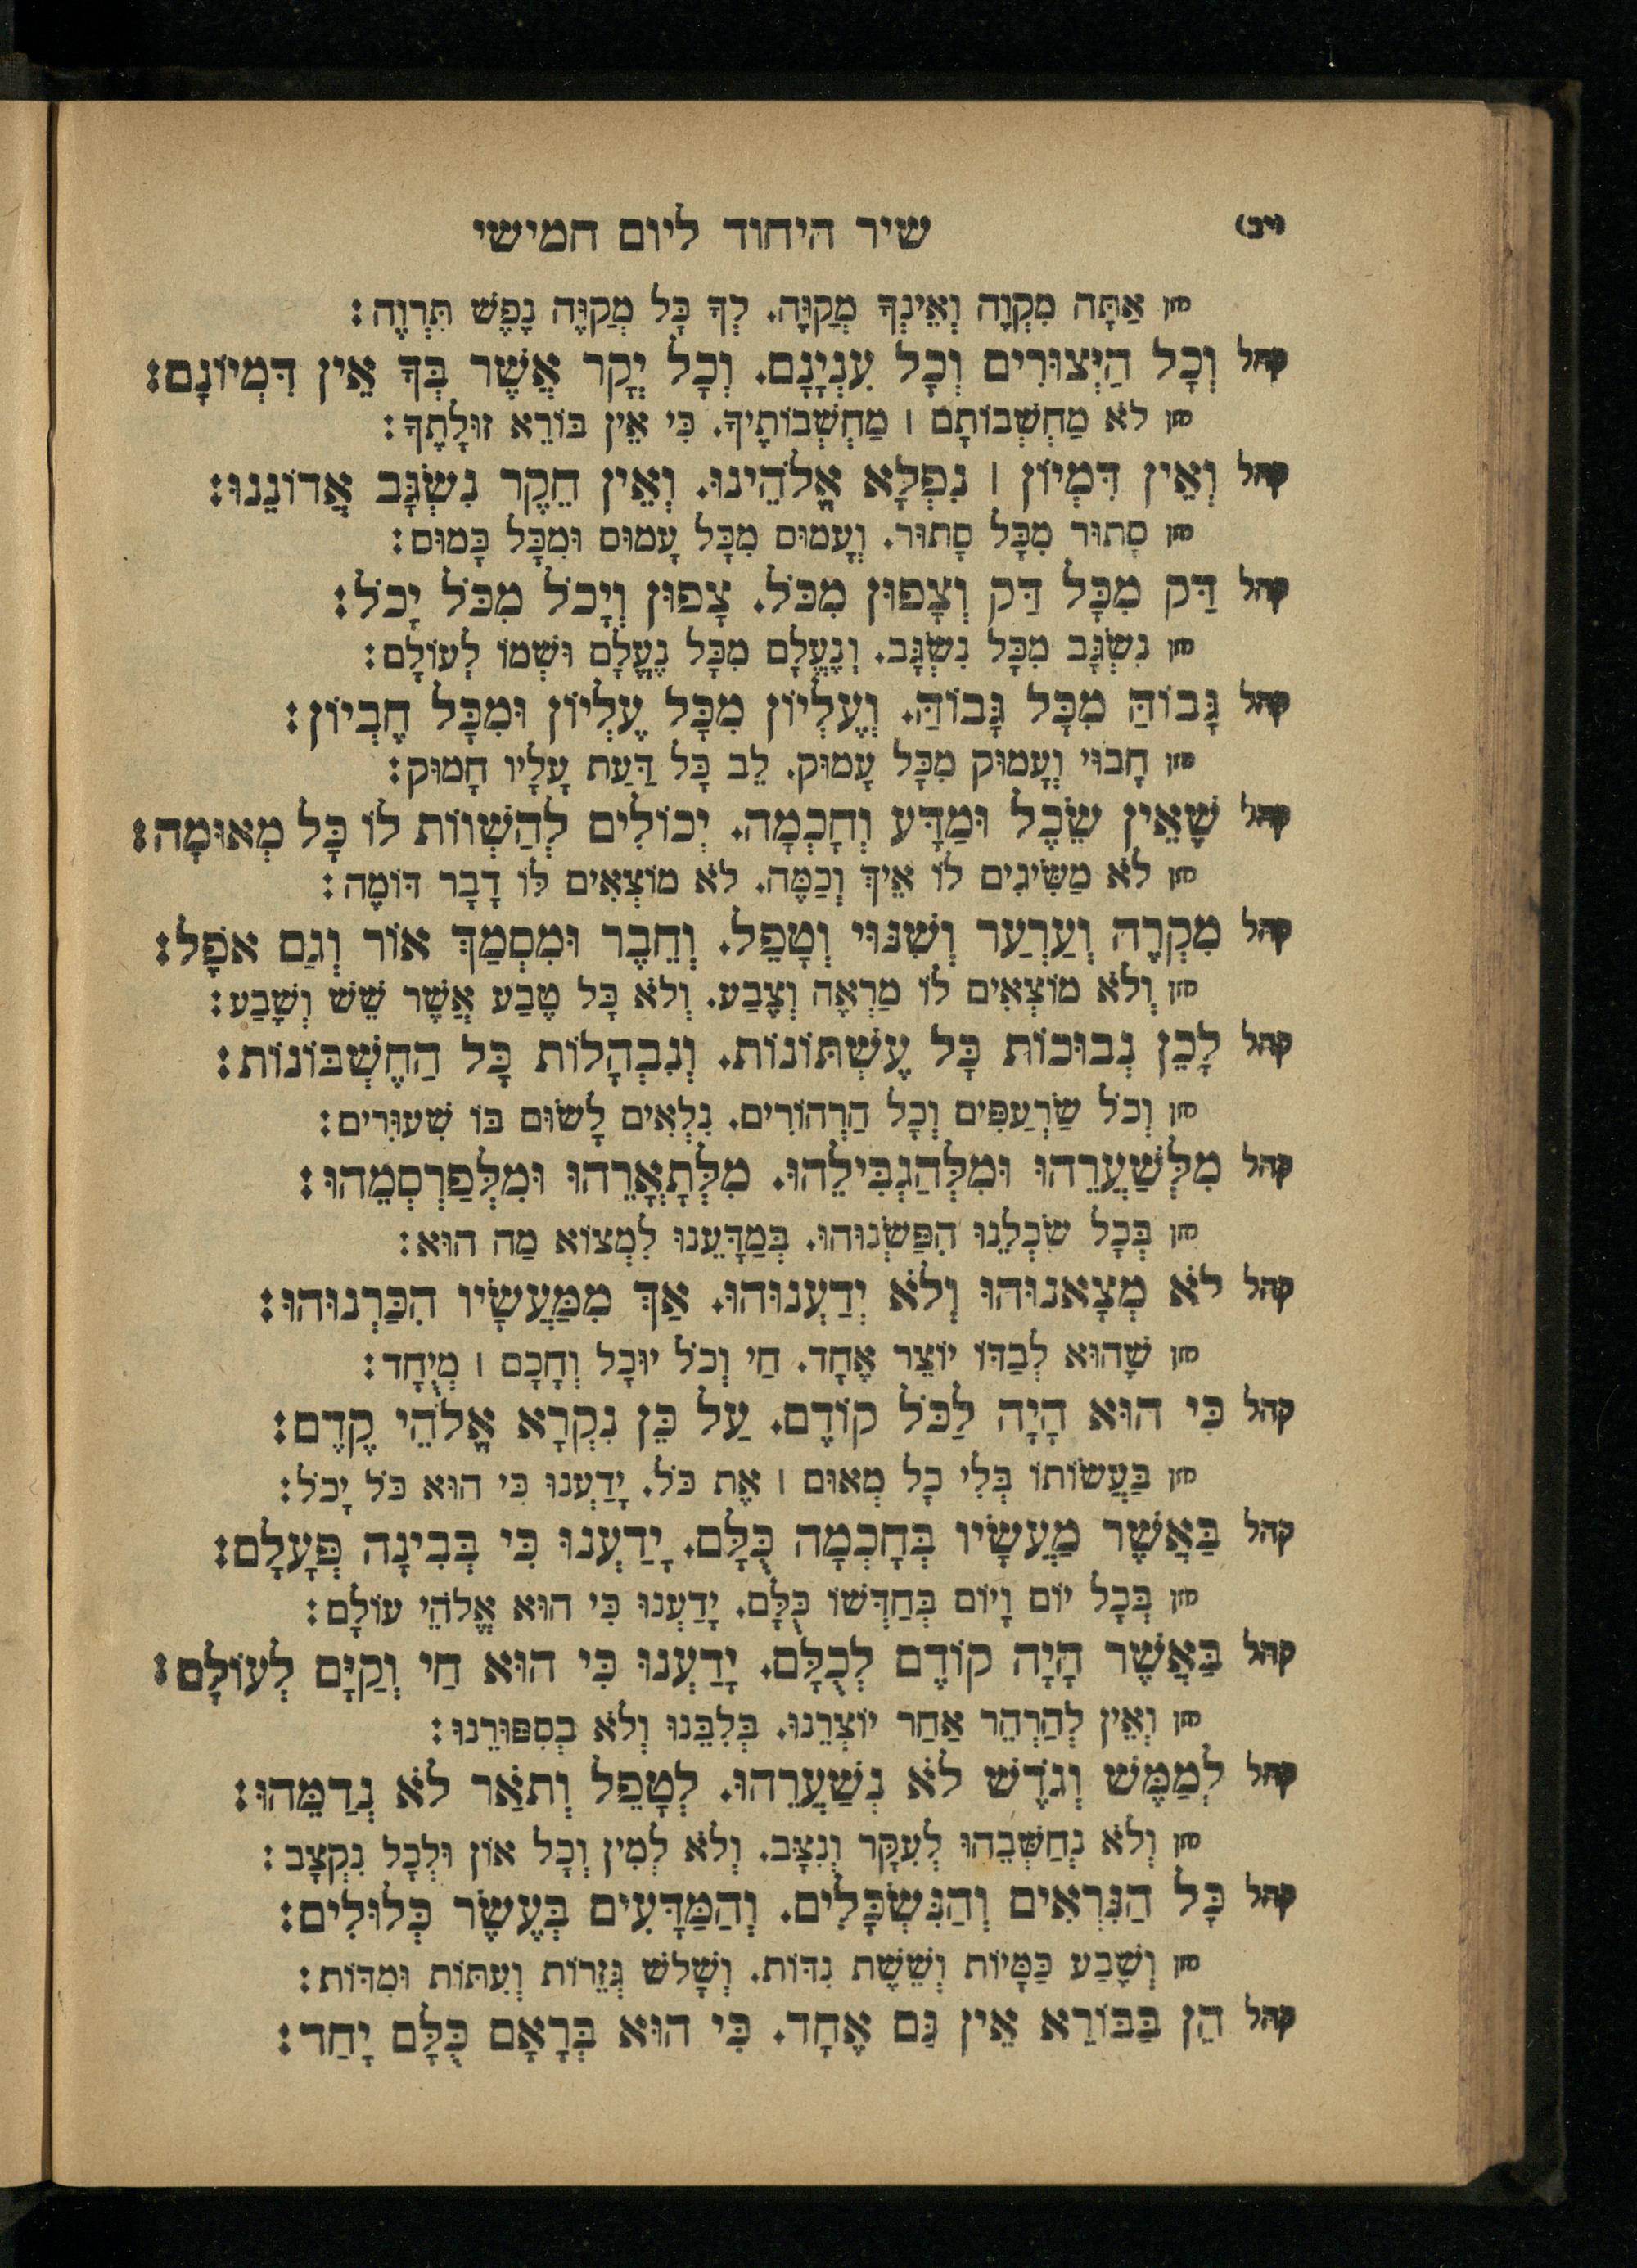 (יב) שיר היחוד ליום חמישי
חזן אַתָּה מִקְוֶה וְאֵינְךָ מְקַוֶּה. לְךָ כָּל מְקַוֶּה נָפֶשׁ תִּרְוֶה:
קהל וְכָל הַיְּצוּרִים וְכָל עִנְיָנָם. וְכָל יְקָר אֲשֶׁר בְּךָ אֵין דִּמְיוֹנָם:
חזן לֹא מַחְשְׁבוֹתָם ׀ מַחְשְׁבוֹתֶיךָ. כִּי אֵין בּוֹרֵא זוּלָתֶךָ:
קהל וְאֵין דִּמְיוֹן ׀ נִפְלָא אֱלֹהֵינוּ. וְאֵין חֵקֶר נִשְׂגָּב אֲדוֹנֵנוּ:
חזן סָתוּר מִכָּל סָתוּר. וְעָמוּם מִכָּל עָמוּם וּמִכָּל כָּמוּם:
קהל דַּק מִכָּל דַּק וְצָפוּן מִכֹּל. צָפוּן וְיָכֹל מִכֹּל יָכֹל:
חזן נִשְׂגָּב מִכָּל נִשְׂגָּב. וְנֶעֱלָם מִכָּל נֶעֱלָם וּשְׁמוֹ לְעוֹלָם:
קהל גָּבוֹהַּ מִכָּל גָּבוֹהַּ. וְעֶלְיוֹן מִכָּל עֶלְיוֹן וּמִכָּל חֶבְיוֹן:
חזן חָבוּי וְעָמוּק מִכָּל עָמוּק. לֵב כָּל דַּעַת עָלָיו חָמוּק:
קהל שֶׁאֵין שֵׂכֶל וּמַדָּע וְחָכְמָה. יְכוֹלִים לְהַשְׁווֹת לוֹ כָּל מְאוּמָה:
חזן לֹא מַשִּׂיגִים לוֹ אֵיךְ וְכַמֶּה. לֹא מוֹצְאִים לוֹ דָבָר דּוֹמֶה:
קהל מִקְרֶה וְעַרְעַר וְשִׁנּוּי וְטָפֵל. וְחֵבֶר וּמִסְמַךְ אוֹר וְגַם אֹפֶל:
חזן וְלֹא מוֹצְאִים לוֹ מַרְאֶה וְצֶבַע. וְלֹא כָּל טֶבַע אֲשֶׁר שֵׁשׁ וְשֶׁבַע:
קהל לָכֵן נְבוּכוֹת כָּל עֶשְׁתּוֹנוֹת. וְנִבְהָלוֹת כָּל הַחֶשְׁבּוֹנוֹת:
חזן וְכֹל שַׂרְעַפִּים וְכָל הַרְהוֹרִים. נִלְאִים לָשׂוּם בּוֹ שִׁעוּרִים:
קהל מִלְּשַׁעֲרֵהוּ וּמִלְּהַגְבִּילֵהוּ. מִלְּתָאֳרֵהוּ וּמִלְּפַרְסְמֵהוּ:
חזן בְּכָל שִׂכְלֵנוּ חִפַּשְׂנוּהוּ. בְּמַדָּעֵנוּ לִמְצוֹא מַה הוּא:
קהל לֹא מְצָאנוּהוּ וְלֹא יְדַעְנוּהוּ. אַךְ מִמַּעֲשָׂיו הִכַּרְנוּהוּ:
חזן שֶׁהוּא לְבַדּוֹ יוֹצֵר אֶחָד. חַי וְכֹל יוּכָל וְחָכָם ׀ מְיֻחָד:
קהל כִּי הוּא הָיָה לַכֹּל קוֹדֶם. עַל כֵּן נִקְרָא אֱלֹהֵי קֶדֶם:
חזן בַּעֲשׂוֹתוֹ בְּלִי כָל מְאוּם ׀ אֶת כֹּל. יָדַעְנוּ כִּי הוּא כֹּל יָכֹל:
קהל בַּאֲשֶׁר מַעֲשָׂיו בְּחָכְמָה כֻּלָּם. יָדַעְנוּ כִּי בְּבִינָה פְּעָלָם:
חזן בְּכָל יוֹם וָיוֹם בְּחַדְּשׁוֹ כֻּלָּם. יָדַעְנוּ כִּי הוּא אֱלֹהֵי עוֹלָם:
קהל בַּאֲשֶׁר הָיָה קוֹדֶם לְכֻלָּם. יָדַעְנוּ כִּי הוּא חַי וְקַיָּם לְעוֹלָם:
חזן וְאֵין לְהַרְהֵר אַחַר יוֹצְרֵנוּ. בְּלִבֵּנוּ וְלֹא בְסִפּוּרֵנוּ:
קהל לְמַמָּשׁ וְגֹדֶשׁ לֹא נְשַׁעֲרֵהוּ. לְטָפֵל וְתֹאַר לֹא נְדַמֵּהוּ:
חזן וְלֹא נְחַשְּׁבֵהוּ לְעִקָּר וְנִצָּב. וְלֹא לְמִין וְכָל אוֹן וּלְכָל נִקְצָב:
קהל כָּל הַנִּרְאִים וְהַנִּשְׂכָּלִים. וְהַמַּדָּעִים בְּעֶשֶׂר כְּלוּלִים:
חזן וְשֶׁבַע כַּמָּיוֹת וְשֵׁשֶׁת נִדּוֹת. וְשָׁלֹשׁ גְּזֵרוֹת וְעִתּוֹת וּמִדּוֹת:
קהל הֵן בַּבּוֹרֵא אֵין גַּם אֶחָד. כִּי הוּא בְּרָאָם כֻּלָּם יָחַד: